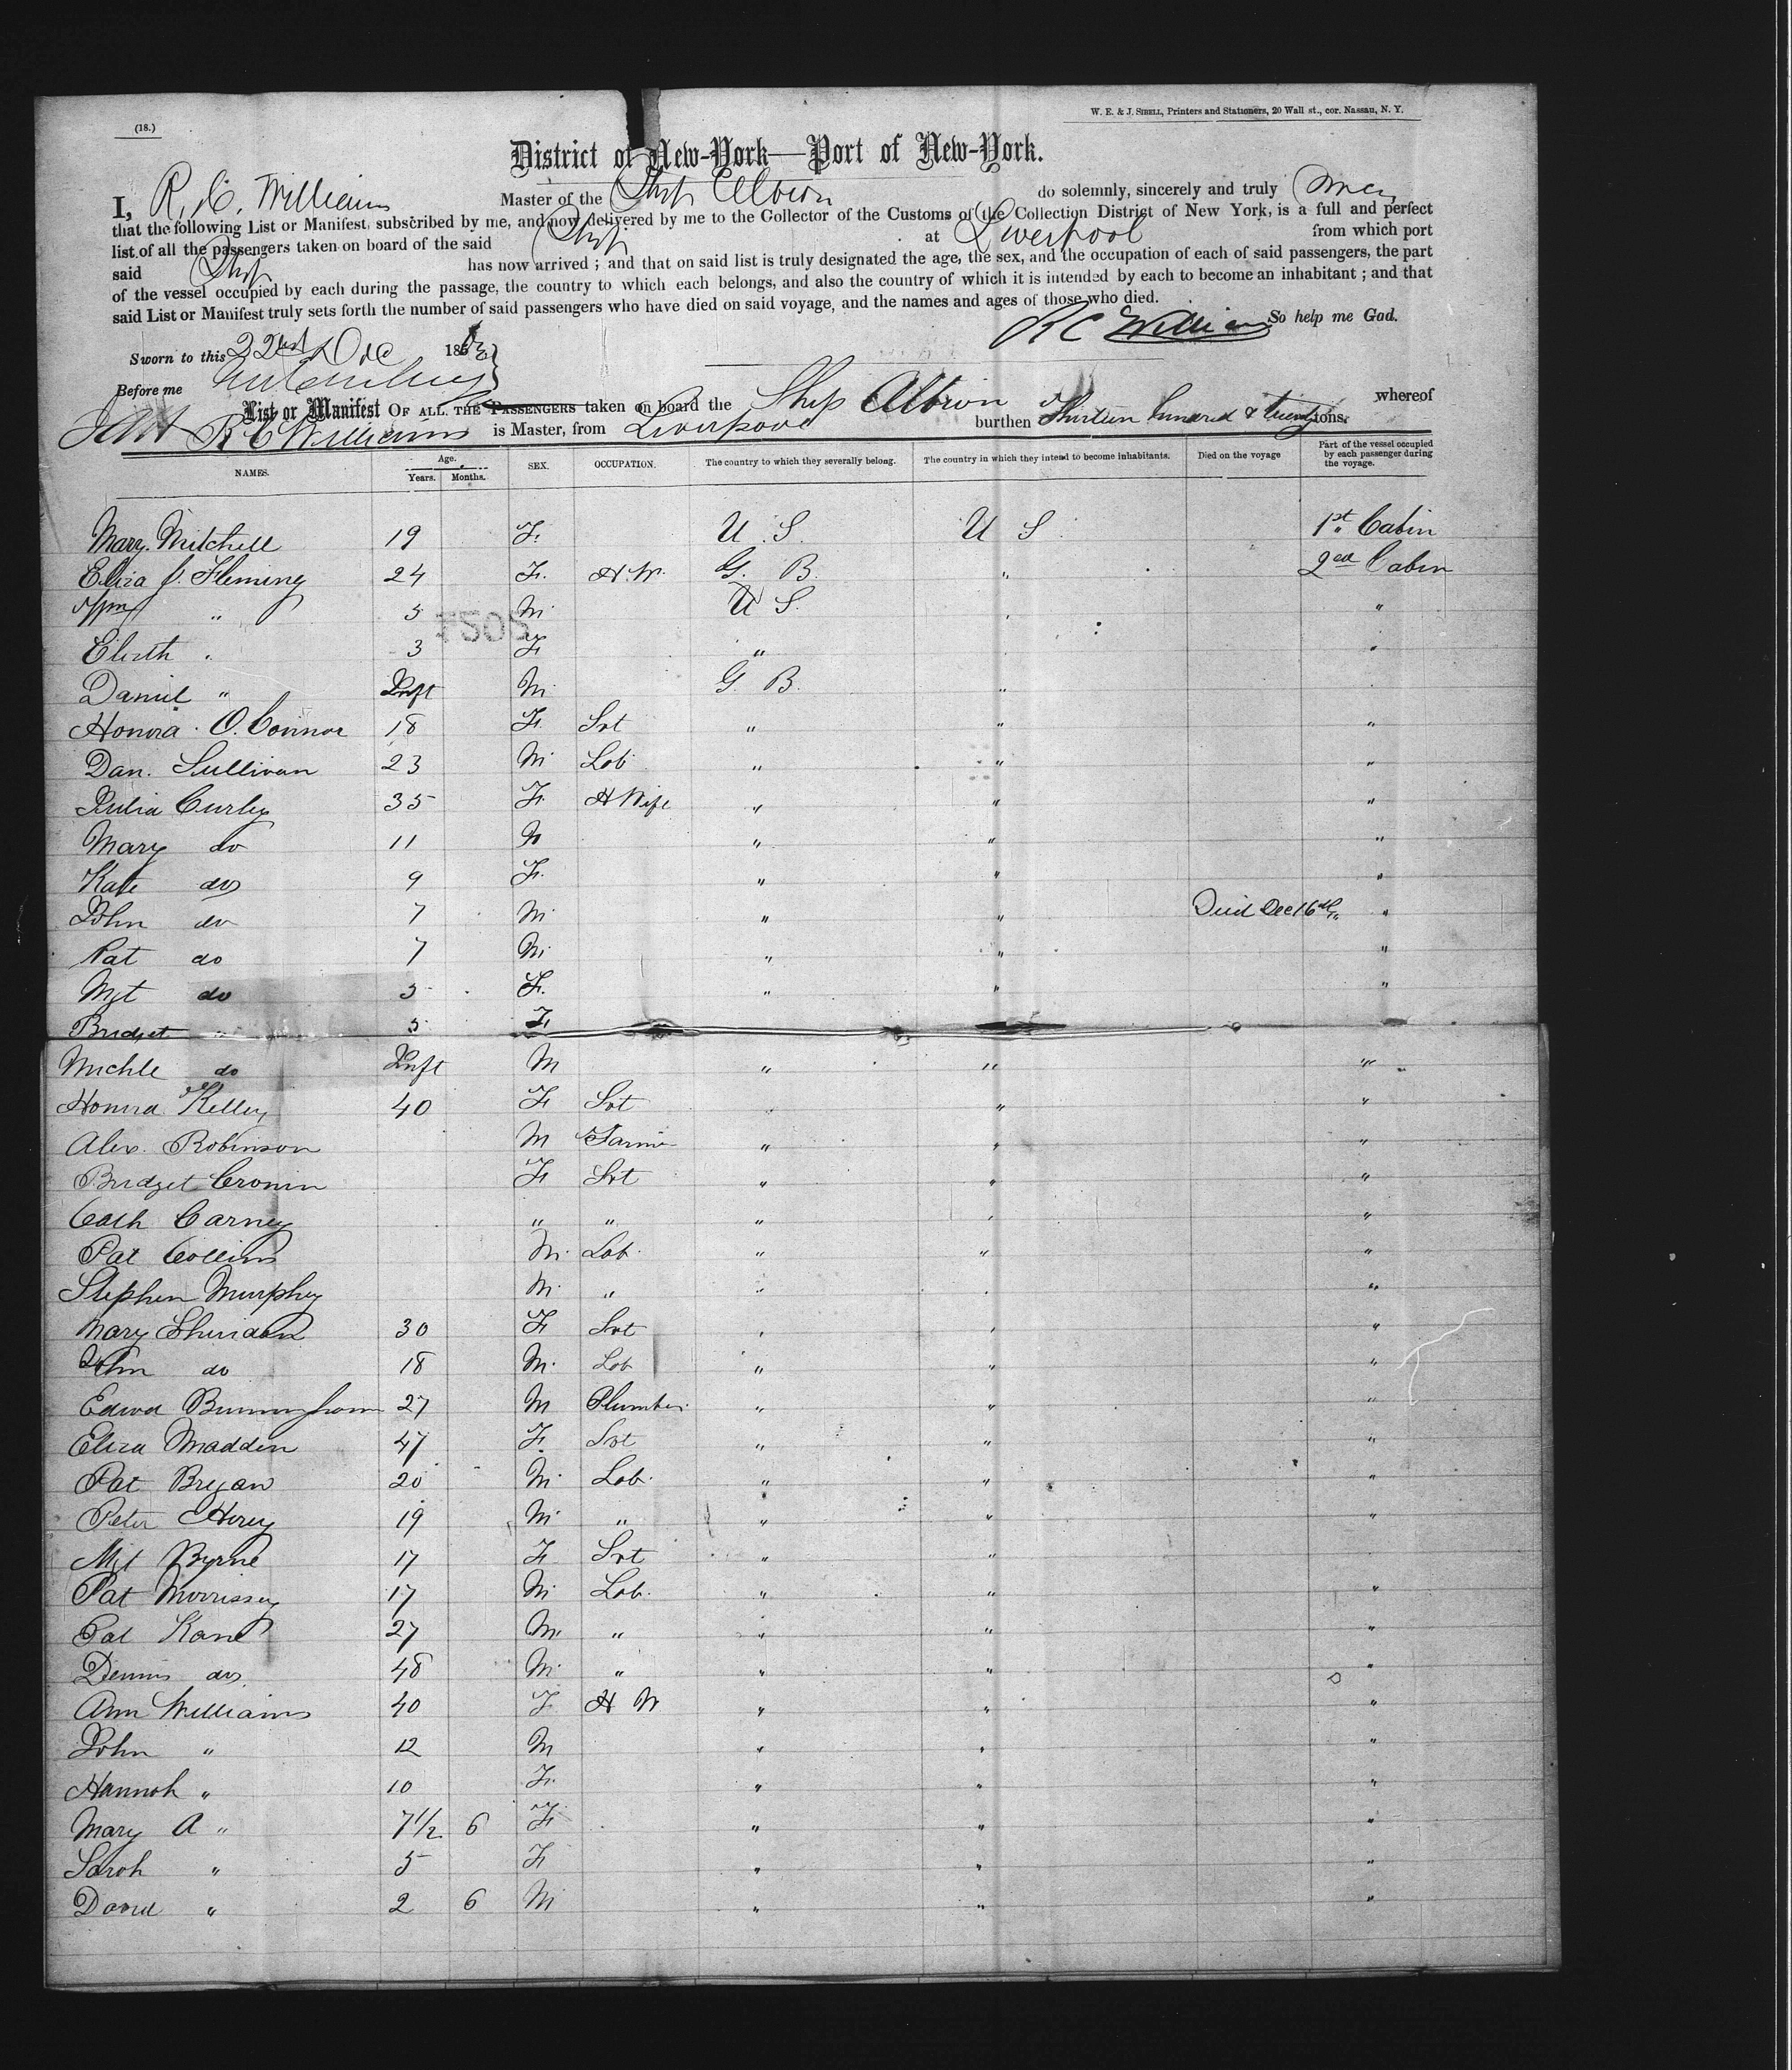 (18.)
W. E. & J. SIBELL, Printers and Stationers, 20 Wall st., cor. Nassau, N. Y.
District of New-York—Port of New-York.
I, R. C. Williams Master of the Ship Albion do solemnly, sincerely and truly
that the following List or Manifest, subscribed by me, and now delivered by me to the Collector of the Customs of the Collection District of New York, is a full and perfect
list of all the passengers taken on board of the said Ship at Liverpool from which port
said Ship has now arrived ; and that on said list is truly designated the age, the sex, and the occupation of each of said passengers, the part
of the vessel occupied by each during the passage, the country to which each belongs, and also the country of which it is intended by each to become an inhabitant ; and that
said List or Manifest truly sets forth the number of said passengers who have died on said voyage, and the names and ages of those who died.
R C Williams So help me God.
Sworn to this 22nd Dec 186
Before me
List or Manifest OF ALL THE PASSENGERS taken on board the Ship Albion whereof
R C Williams is Master, from Liverpool burthen Thirteen hundred & twenty tons.
NAMES. Age. Years. Months. SEX. OCCUPATION. The country to which they severally belong. The country in which they intend to become inhabitants. Died on the voyage Part of the vessel occupied by each passenger during the voyage.
Mary Mitchell 19 F. U S. U S. 1st Cabin
Eliza J. Fleming 24 F. H.W. G. B. " 2ed Cabin
Wm " 5 M. U S. " "
Elizth " 3 F " " "
Daniel " Inft M. G. B. "
Honora O.Connor 18 F. Svt " " "
Dan. Sullivan 23 M. Lab. " " "
Julia Curley 35 F. H Wife " " "
Mary do 11 " " "
Kate do 9 F. " " "
John do 7 M. " " Died Dec 16th "
Pat do 7 M. " " "
Mgt do 5 F. " " "
Bridget " 5 F
Michle do Inft M " " "
Honora Kelley 40 F Svt " " "
Alex. Robinson M Farmer " " "
Bridget Cronin F Svt " " "
Cath Carney " " " " "
Pat Collins M. Lab. " " "
Stephen Murphey M. " " " "
Mary Sheridan 30 F Svt " " "
John do 18 M. Lab " " "
Edwd Bunningham 27 M Plumber " " "
Eliza Madden 47 F. Svt " " "
Pat Bryan 20 M. Lab. " " "
Peter 19 M. " " " "
Mgt Byrne 17 F Svt " "
Pat Morrissey 17 M. Lab. " " "
Pat Kane 27 M. " " " "
Dennis do 48 M. " " " "
Ann Williams 40 F H W " " "
John " 12 M " " "
Hannah " 10 F. " " "
Mary A " 7 1/2 6 F " " "
Sarah " 5 F " " "
David " 2 6 M " " "